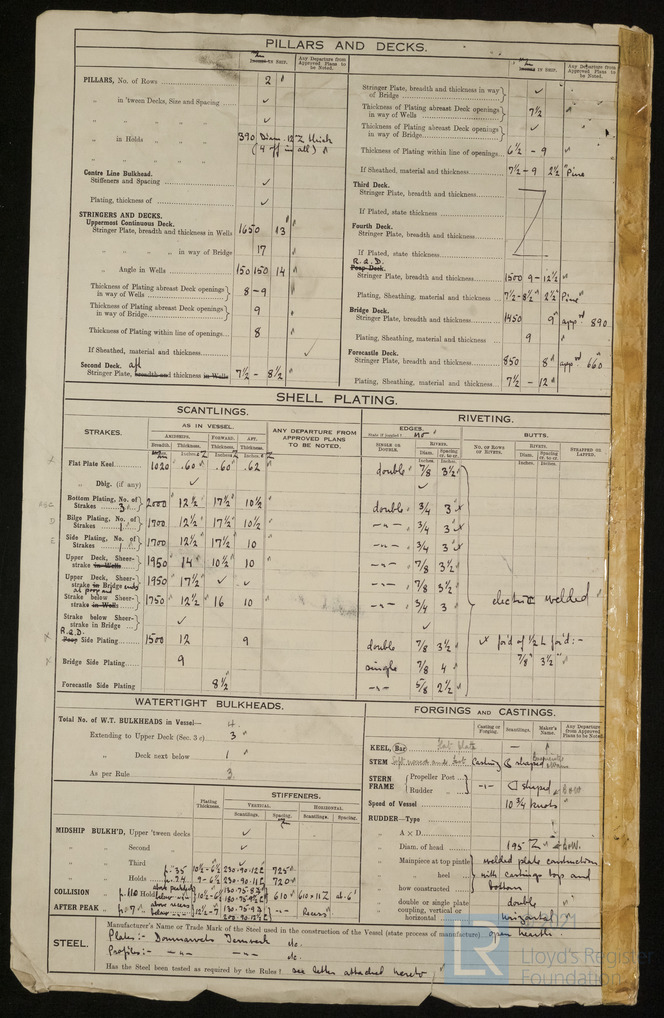 PILLARS AND DECKS.
IN SHIP.
Any Departure from Approved Plans to be Noted.
PILLARS, No. of Rows 2
„ in 'tween Decks, Size and Spacing ✓
„ „ „ „ ✓
„ in Holds „ „ 390 Diam. 12 Z thick
„ „ „ „ (4 off in all)
Centre Line Bulkhead.
Stiffeners and Spacing ✓
Plating, thickness of ✓
STRINGERS AND DECKS.
Uppermost Continuous Deck.
Stringer Plate, breadth and thickness in Wells 1650 13
„ „ „ „ in way of Bridge 17
„ Angle in Wells 150 150 14
Thickness of Plating abreast Deck openings in way of Wells 8 - 9
Thickness of Plating abreast Deck openings in way of Bridge 9
Thickness of Plating within line of openings 8
If Sheathed, material and thickness ✓
Second Deck. aft
Stringer Plate, breadth and thickness in Wells 7½ - 8½
IN SHIP.
Any Departure from Approved Plans to be Noted.
Stringer Plate, breadth and thickness in way of Bridge ✓
Thickness of Plating abreast Deck openings in way of Wells 7½
Thickness of Plating abreast Deck openings in way of Bridge ✓
Thickness of Plating within line of openings 6½ - 9
If Sheathed, material and thickness 7½ - 9 2½" Pine
Third Deck.
Stringer Plate, breadth and thickness
If Plated, state thickness
Fourth Deck.
Stringer Plate, breadth and thickness
If Plated, state thickness
R.Q.D.
Poop Deck.
Stringer Plate, breadth and thickness 1500 9 - 12½
Plating, Sheathing, material and thickness 7½-8½ 2½" Pine
Bridge Deck.
Stringer Plate, breadth and thickness 1450 9 appd 890
Plating, Sheathing, material and thickness 9
Forecastle Deck.
Stringer Plate, breadth and thickness 850 8 appd 660
Plating, Sheathing, material and thickness 7½ - 12
SHELL PLATING.
SCANTLINGS.
STRAKES.
AS IN VESSEL.
AMIDSHIPS. FORWARD. AFT.
Breadth. Thickness. Thickness. Thickness.
ANY DEPARTURE FROM APPROVED PLANS TO BE NOTED.
Flat Plate Keel 1020 .60 .60 .62
„ Dblg. (if any) ✓
Bottom Plating, No. of Strakes 3 2000 12½ 17½ 10½
Bilge Plating, No. of Strakes 1 1700 12½ 17½ 10½
Side Plating, No. of Strakes 1 1700 12½ 17½ 10
Upper Deck, Sheerstrake in Wells 1950 14 10½ 10
Upper Deck, Sheerstrake in Bridge ends 1950 17½ ✓ ✓
Strake below Sheerstrake in Wells 1750 12½ 16 10
Strake below Sheerstrake in Bridge ✓
R.Q.D.
Poop Side Plating 1500 12 9
Bridge Side Plating 9
Forecastle Side Plating 8½
RIVETING.
EDGES.
State if joggled?
SINGLE OR DOUBLE.
RIVETS.
Diam. Spacing cr. to cr.
Inches. Inches.
BUTTS.
NO. OF ROWS OF RIVETS.
RIVETS.
Diam. Spacing cr. to cr.
Inches. Inches.
STRAPPED OR LAPPED.
double 7/8 3½
✓
double 3/4 3
-"- 3/4 3
-"- 3/4 3
-"- 7/8 3½
-"- 7/8 3½
-"- 3/4 3
✓
double 7/8 3½
single 7/8 4
-"- 5/8 2½
electric welded
for'd of ½ L for'd :-
7/8 3½
WATERTIGHT BULKHEADS.
Total No. of W.T. BULKHEADS in Vessel— 4.
Extending to Upper Deck (Sec. 3 c) 3
„ Deck next below 1
As per Rule 3
Plating Thickness.
STIFFENERS.
VERTICAL. HORIZONTAL.
Scantlings. Spacing. Scantlings. Spacing.
MIDSHIP BULKH'D, Upper 'tween decks ✓
„ „ Second „ ✓
„ „ Third „
„ „ Holds
COLLISION „
AFTER PEAK „
FORGINGS AND CASTINGS.
Casting or Forging. Scantlings. Maker's Name. Any Departure from Approved Plans to be Noted.
KEEL, Bar flat plate —
STEM Casting shaped
STERN FRAME Propeller Post
Rudder „ -"- shaped
Speed of Vessel 10¾ knots
RUDDER—Type
„ A × D
„ Diam. of head 195 Z
„ Mainpiece at top pintle welded plate construction
„ „ heel with castings top and
„ how constructed bottom
„ double or single plate double
„ coupling, vertical or horizontal horizontal
STEEL.
Manufacturer's Name or Trade Mark of the Steel used in the construction of the Vessel (state process of manufacture) open hearth.
Plates :- Domnarvets Jernverk etc.
Profiles :- -"- -"- etc.
Has the Steel been tested as required by the Rules? see letter attached hereto
LR
2021
Lloyd's Register
Foundation